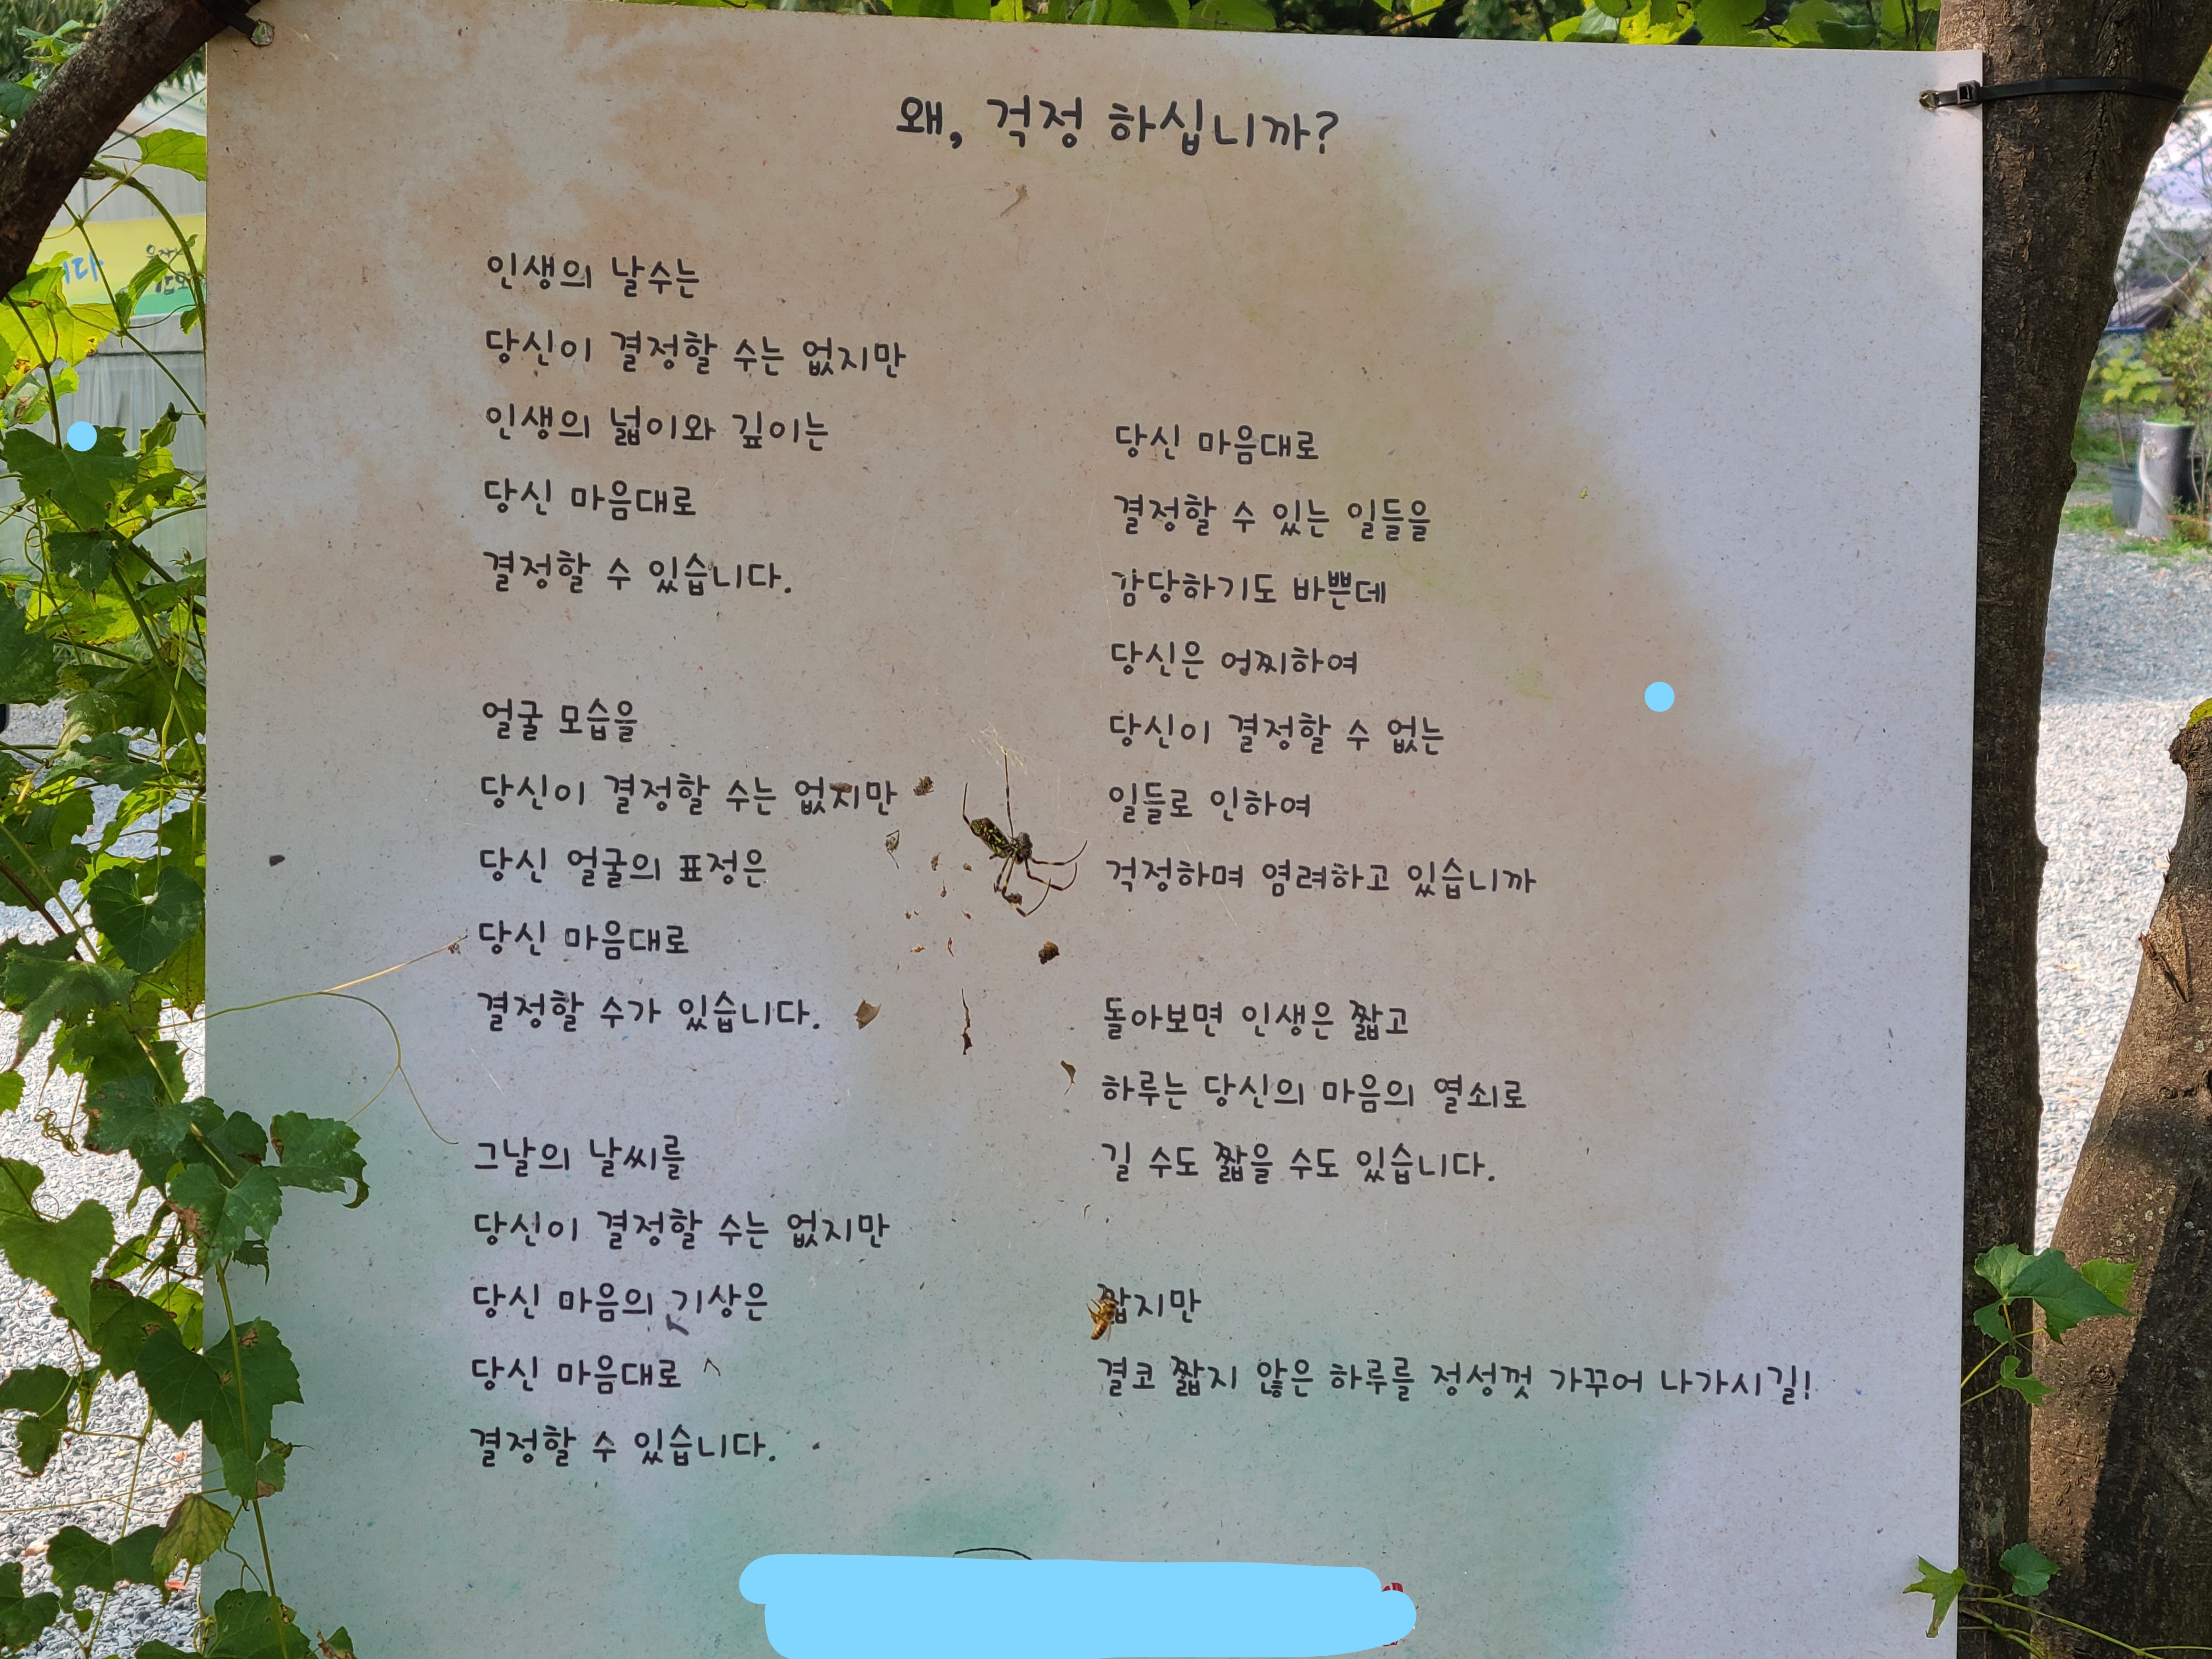 왜, 걱정 하십니까?
인생의 날수는
당신이 결정할 수는 없지만
인생의 넓이와 깊이는
당신 마음대로
결정할 수 있습니다.
얼굴 모습을
당신이 결정할 수는 없지만
당신 얼굴의 표정은
당신 마음대로
결정할 수가 있습니다.
그날의 날씨를
당신이 결정할 수는 없지만
당신 마음의 기상은
당신 마음대로
결정할 수 있습니다.
당신 마음대로
결정할 수 있는 일들을
감당하기도 바쁜데
당신은 어찌하여
당신이 결정할 수 없는
일들로 인하여
걱정하며 염려하고 있습니까
돌아보면 인생은 짧고
하루는 당신의 마음의 열쇠로
길 수도 짧을 수도 있습니다.
짧지만
결코 짧지 않은 하루를 정성껏 가꾸어 나가시길!